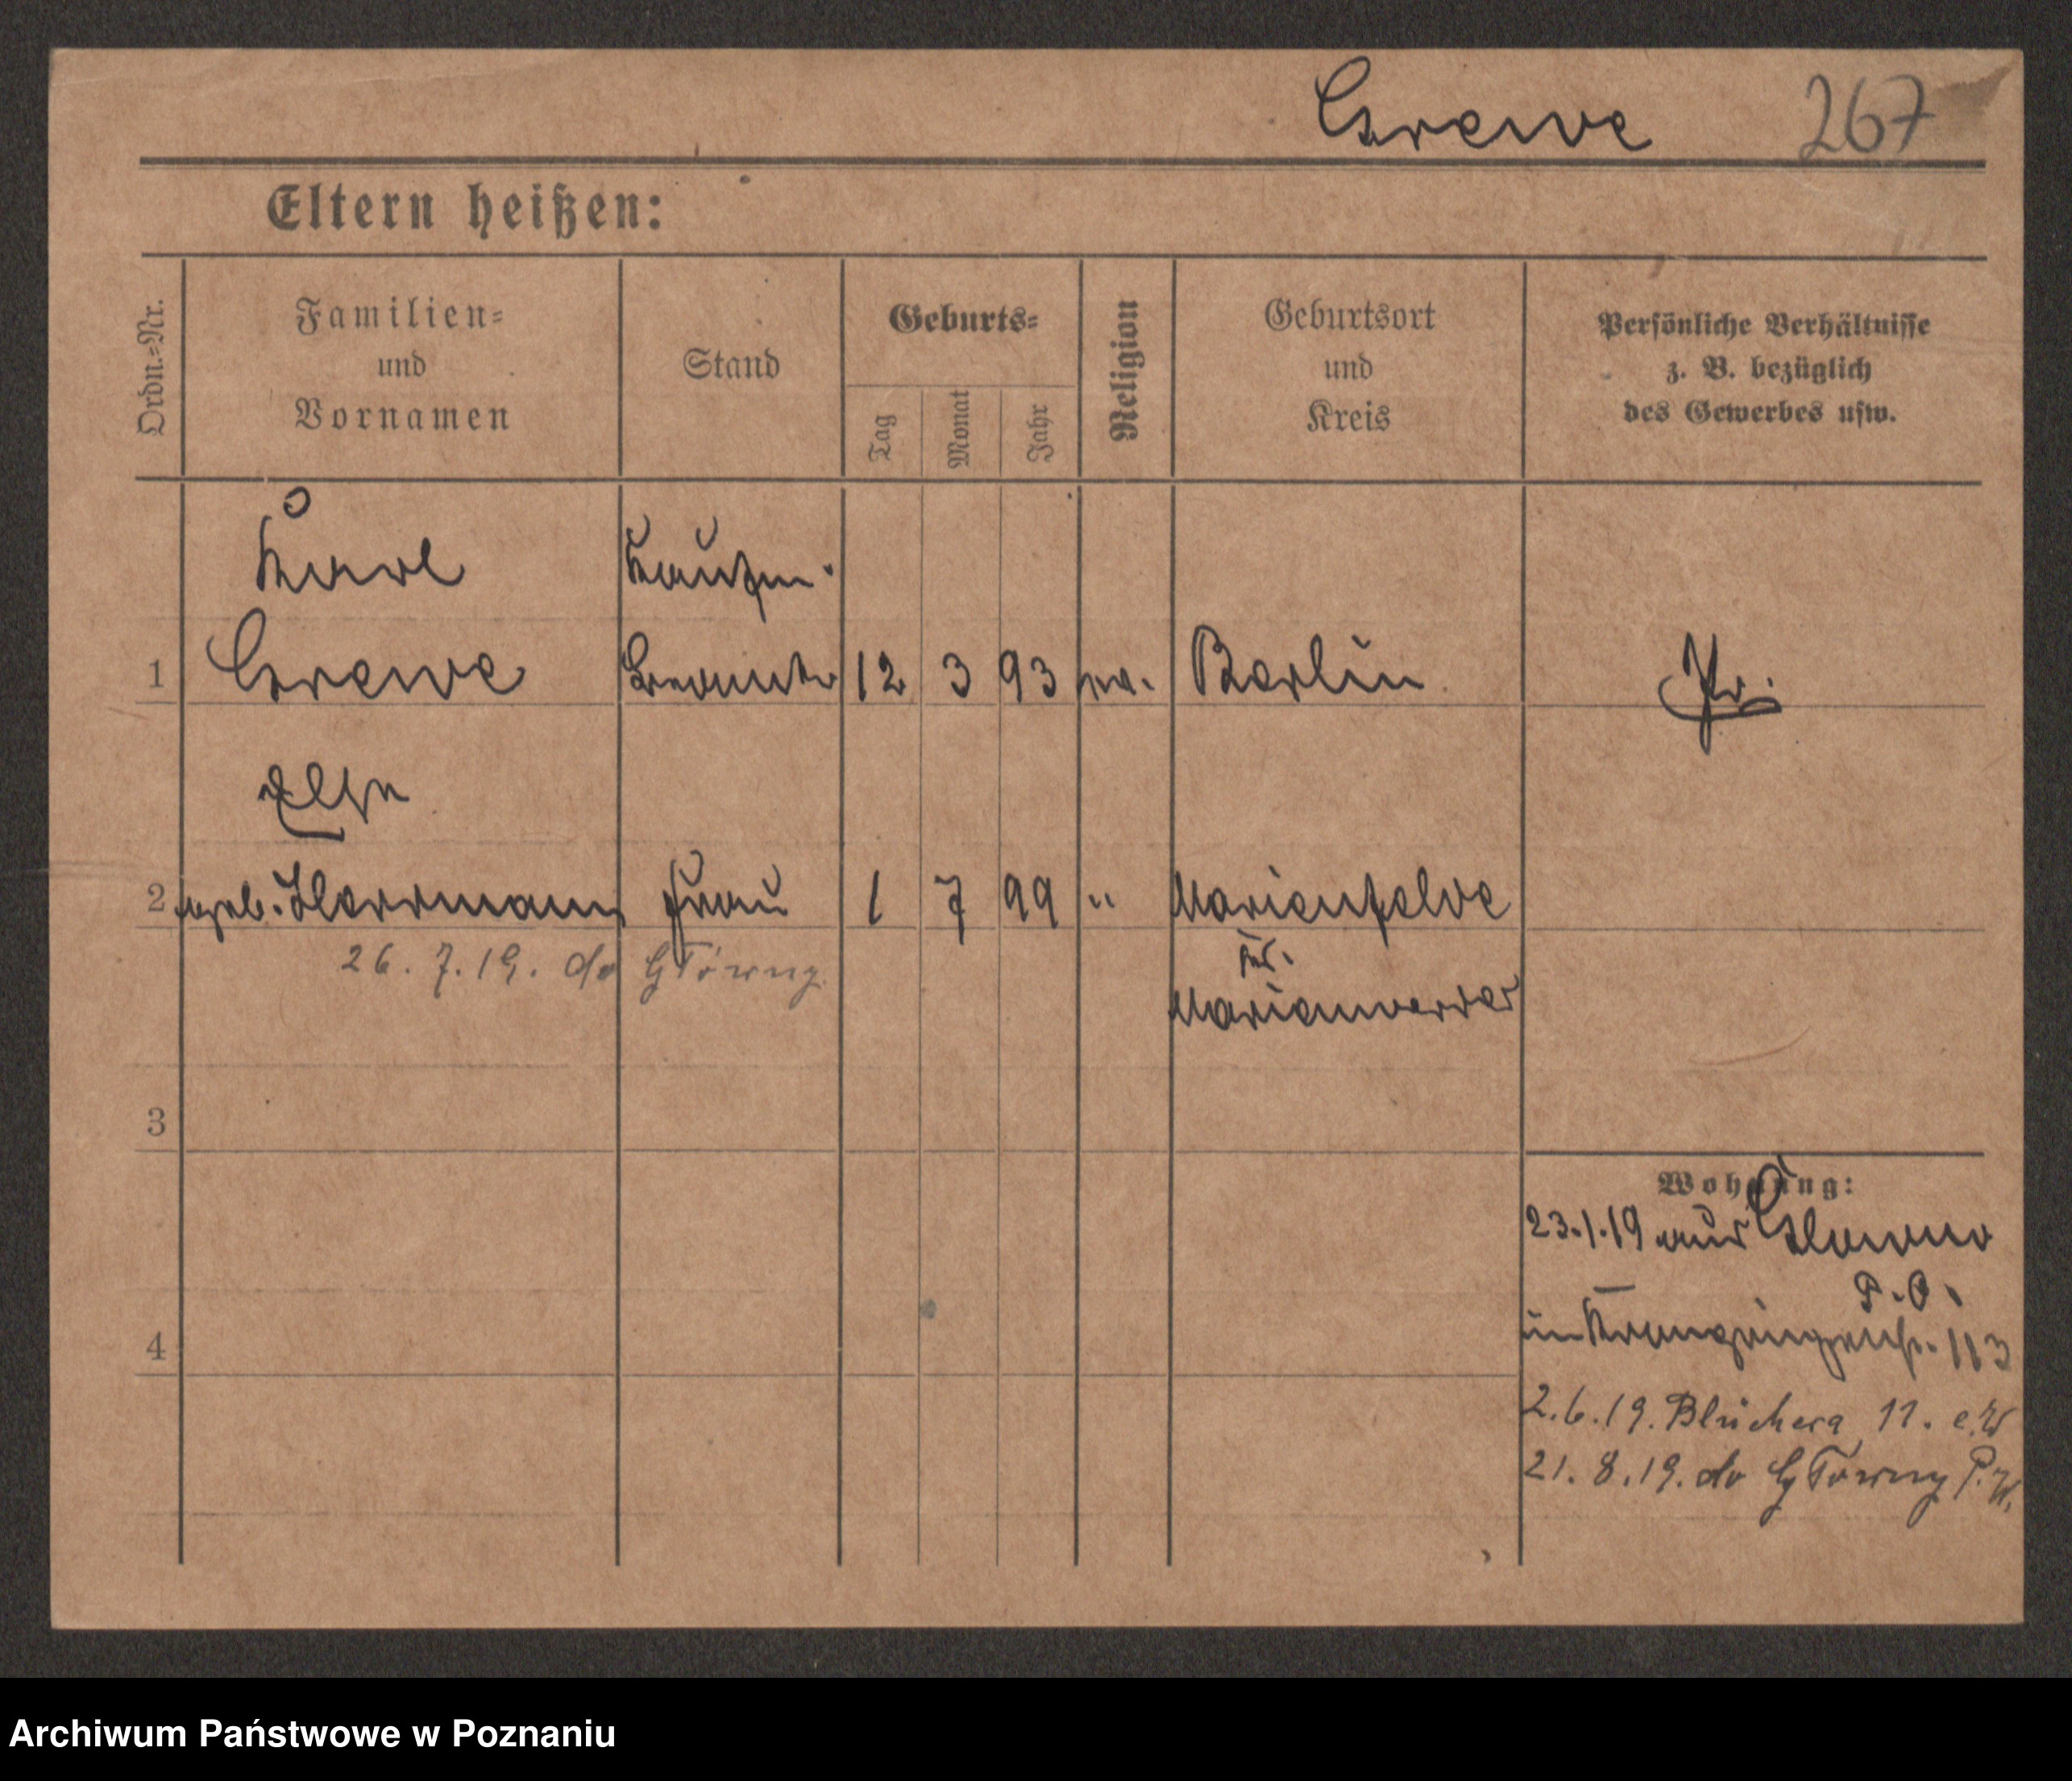 Grewe 267
Eltern heißen:
Ordn.=Nr.
Familien=
und
Vornamen
Stand
Geburts=
Tag
Monat
Jahr
Religion
Geburtsort
und
Kreis
Persönliche Verhältnisse
z. B. bezüglich
des Gewerbes usw.
Karl Kaufm.
1 Grewe Beamter 12 3 93 ev. Berlin Pr.
Else
2 geb. Herrmann Frau 1 7 99 " Marienfelde
26. 7. 19. do Główny Kr.
Marienwerder
3
Wohnung:
23.1.19 aus Glowno
P. O.
in 113
4
2.6.19. Blüchera 11.
21. 8. 19. do Główny P. W.
Archiwum Państwowe w Poznaniu